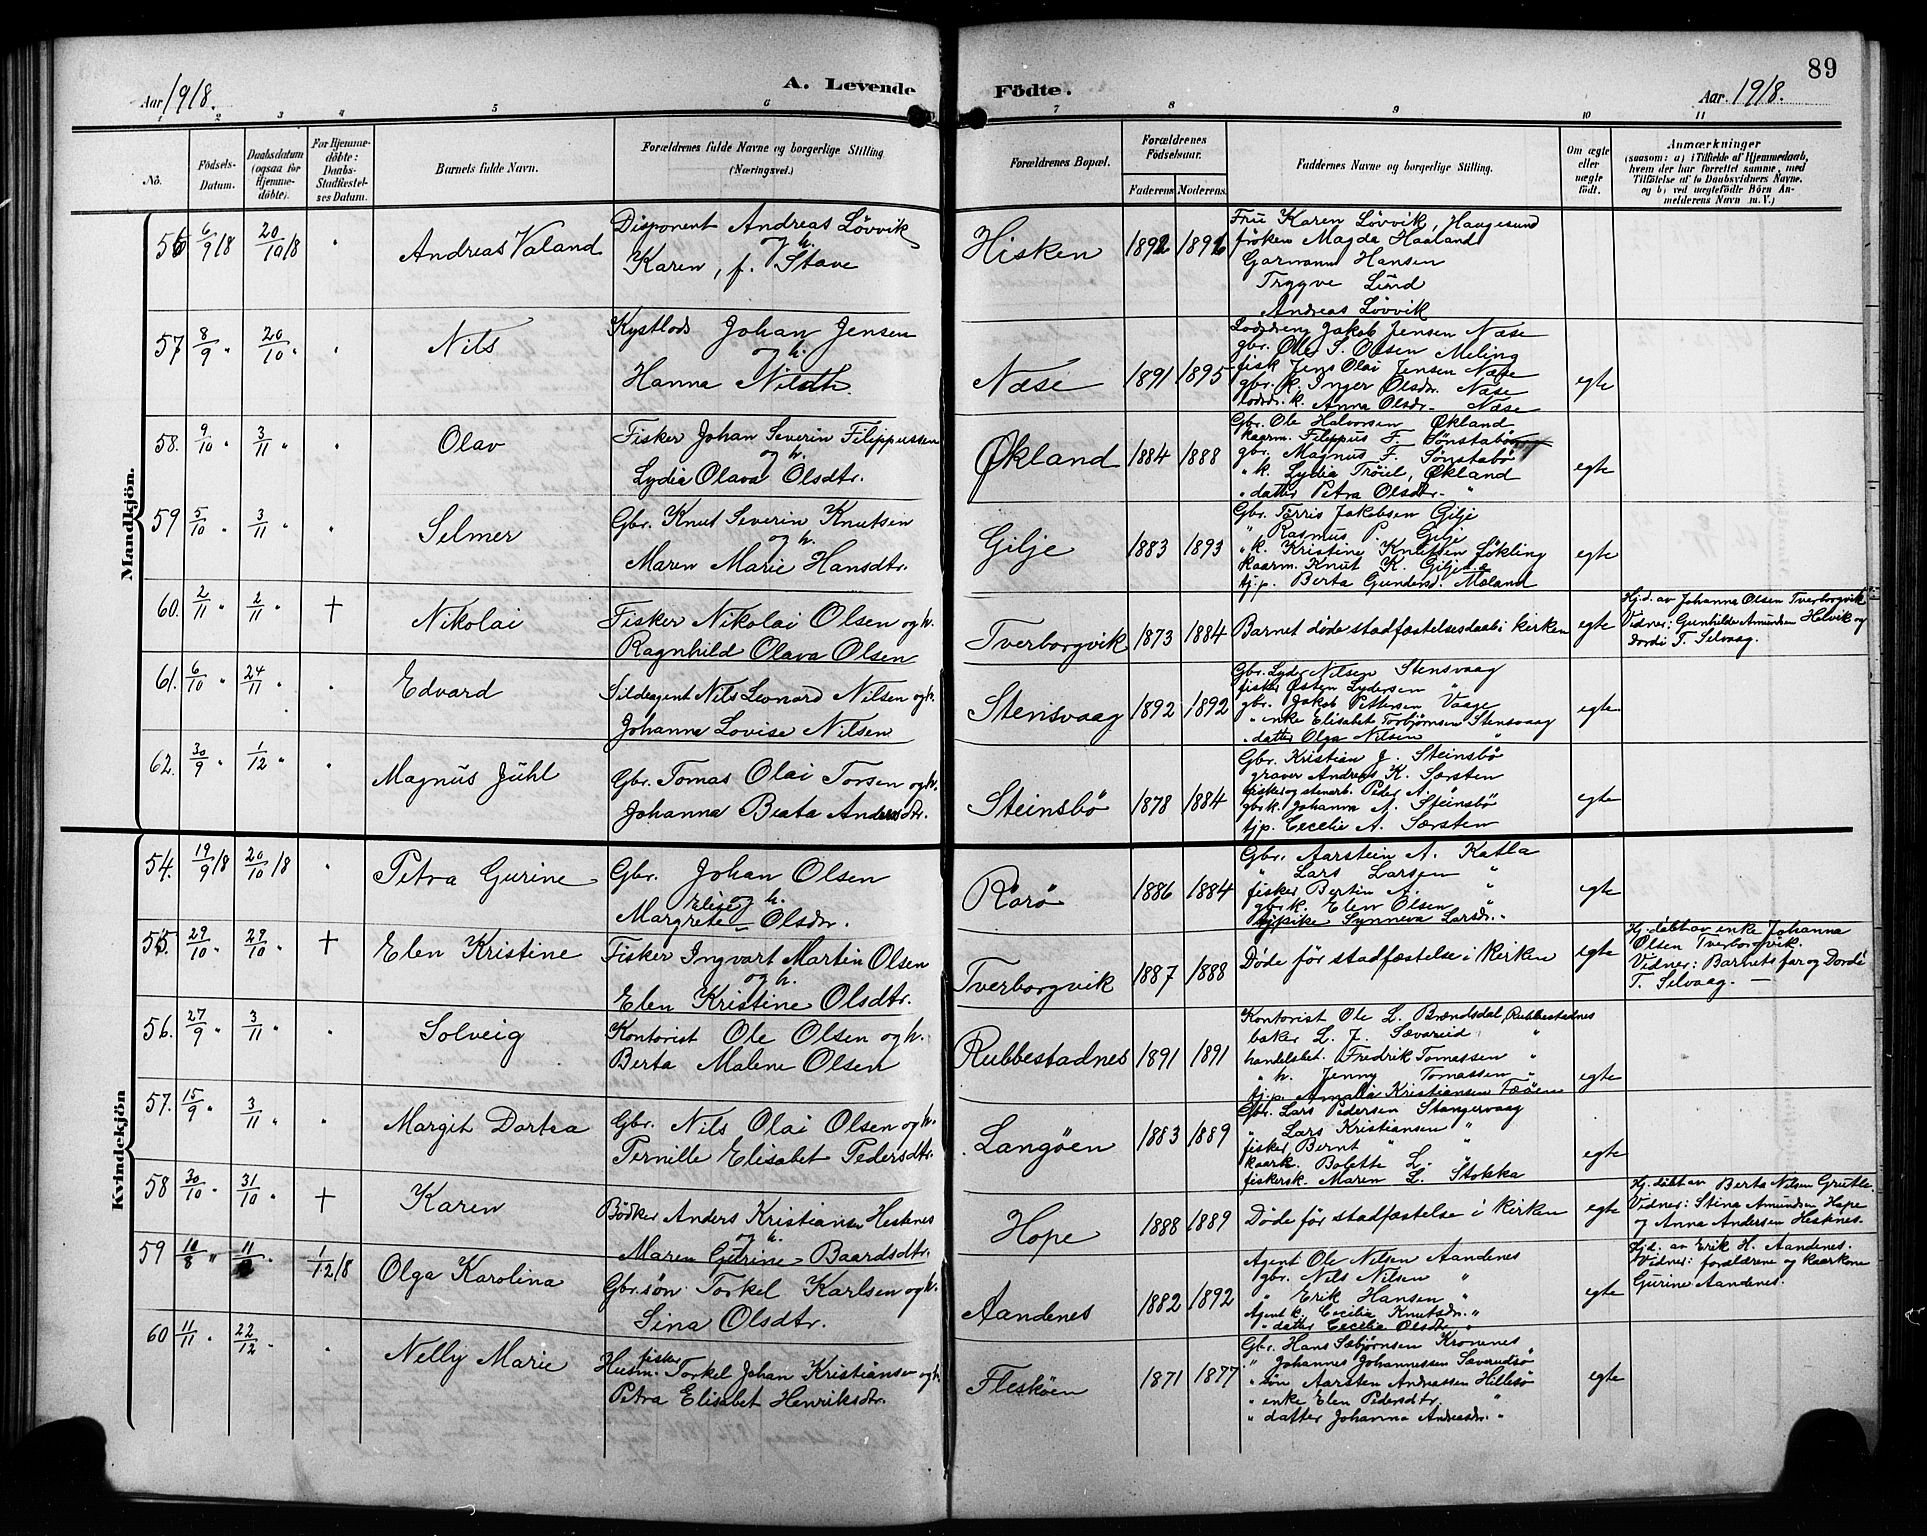 89
Aar 1918. A. Levende Födte. Aar 1918.
1 2 3 4 5 6 7 8 9 10 11
No. Födsels-Datum. Daabsdatum (ogsaa for Hjemmedöbte). For Hjemmedöbte: Daabs-Stadfæstelses Datum. Barnets fulde Navn. Forældrenes fulde Navne og borgerlige Stilling (Næringsvei.) Forældrenes Bopæl. Forældrenes Födselsaar. Faderens Moderens. Faddernes Navne og borgerlige Stilling. Om ægte eller uægte födt. Anmærkninger (saasom: a) i Tilfælde af Hjemmedaab, hvem der har forrettet samme, med Tilföielse af to Daabsvidners Navne, og b) ved uægtefödte Börn Anmelderens Navn m. V.)
Mandkjön.
56 6/9 18 20/10 18 Andreas Valand
Disponent Andreas Lövvik
og h.
Karen, f. Stave
Hisken 1892 1896
Fru Karen Lövvik, Haugesund
fröken Magda Haaland
Garmann Hansen
Trygve Lund
Andreas Lövvik
57 8/9 " 20/10 " Nils
Kystlods Johan Jensen
og h.
Hanna Nilsdtr.
Næse 1891 1895
Lodsdreng Jakob Jensen Næse
gbr. Ole S. Olsen Meling
fisk Jens Olai Jensen Næse
gbr. k. Inger Olsdr. Næse
lodsdr. k. Anna Olsdr. Næse
egte
58. 9/10 " 3/11 " Olav
Fisker Johan Severin Filippussen
og h.
Lydia Olava Olsdtr.
Økland 1884 1888
Gbr. Ole Halvorsen Økland
kaarm. Filippus F. Sønstabø
gbr. Magnus F. Sønstabø
" k. Lydia Tröiel, Økland
" datter Petra Olsdtr. "
egte
59 5/10 " 3/11 " Selmer
Gbr. Knut Severin Knutsen
og h.
Maren Marie Hansdtr.
Gilje 1883 1893
Gbr. Torris Jakobsen Gilje
" Rasmus P. Gilje
" k. Kristine Knutsen Løkling
Kaarm. Knut K. Gilje
tj.p. Berta Gundersd. Mæland
egte
60. 2/11 " 2/11 " + Nikolai
Fisker Nikolai Olsen og h.
Ragnhild Olava Olsen
Tverborgvik 1873 1884
Barnet døde stadfæstelsesdaab i kirken
egte
Hj.d. av Johanna Olsen Tverborgvik
Vidner: Gunhilde Amundsen Helvik og
Dordi T. Selvaag.
61. 6/10 " 24/11 " Edvard
Sildeagent Nils Leonard Nilsen og h.
Johanna Lovise Nilsen
Stensvaag 1892 1892
Gbr. Lyder Nilsen Stensvaag
fisker Østen Lydersen "
gbr. Jakob Pettersen Vaage
" enke Elisabet Torbjørnsen Stensvaag
" datter Olga Nilsen "
egte
62. 30/9 " 1/12 " Magnus Juhl
Gbr. Tomas Olai Torsen og h.
Johanna Beata Andersdtr.
Steinsbö 1878 1884
Gbr. Kristian J. Steinsbö
graver Andreas K. Særsten
fisker og stenarb. Peder A. "
gbr.k. Johanna A. Steinsbö
tj.p. Cecelie A. Særsten
egte
Kvindekjön
54. 19/9 18 20/10 18 Petra Gurine
Gbr. Johan Olsen
Elise og h.
Margrete Olsdtr.
Rörö 1886 1884
Gbr. Aarstein A. Katla
" Lars Larsen "
fisker Bertin A. "
gbr k. Elen Olsen "
tj.pike Synneva Larsdr. "
egte
55 29/10 " 29/10 " + Elen Kristine
Fisker Ingvart Martin Olsen
og h.
Elen Kristine Olsdtr.
Tverborgvik 1887 1888
Døde för stadfæstelse i kirken
egte
Hj. döbt av enke Johanna
Olsen Tverborgvik.
Vidner: Barnets far og Dordi
T. Selvaag.
56. 27/9 " 3/11 " Solveig
Kontorist Ole Olsen og h.
Berta Malene Olsen
Rubbestadnes 1891 1891
Kontorist Ole L. Brændsdal, Rubbestadnes
baker L. J. Sævareid "
handelsbet. Fredrik Tomassen "
" h. Jenny Tomassen "
tj.p. Amalia Kristiansen Færöen
egte
57. 15/9 " 3/11 " Margit Dortea
Gbr. Nils Olai Olsen og h.
Pernille Elisabet Pedersdtr.
Langöen 1883 1889
Gbr. Lars Pedersen Stangervaag
" Lars Kristiansen "
fisker Bernt " "
kaark. Bolette L. "
fiskersk. Maren L. Stokka
egte
58 30/10 " 31/10 " + Karen
Bödker Anders Kristiansen Hestenes
og h.
Maren Gurine Baardsdtr.
Hope 1888 1889
Döde för stadfæstelse i kirken
egte
Hj. döbt av Berta Nilsen Grutle.
Vidner: Stina Amundsen Hope
og Anna Andersen Hesknes.
59 10/8 " 11/8 " 1/12 18 Olga Karolina
Gbr.sön Torkel Karlsen og h.
Sina Olsdtr.
Aandenes 1882 1892
Agent Ole Nilsen Aandenes
gbr. Nils Nilsen "
" Erik Hansen "
Agent k. Cecilia Knutsdr. "
" datter Cecelia Olsdtr "
egte
Hj.d. av Erik H. Aandenes.
Vidner: forældrene og kaarkone
Gurine Aandenes.
60 11/11 " 22/12 " Nelly Marie
fisker
Husm. Torkel Johan Kristiansen og h.
Petra Elisabet Henriksdtr.
Fleskøen 1871 1877
Gbr. Hans Sæbjørnsen Kronenes
" Johannes Johannessen Sæverudsö
" sön Aarsten Andreassen Hillesö
" enke Elen Pedersdtr. "
" datter Johanna Andreasdr. "
egte